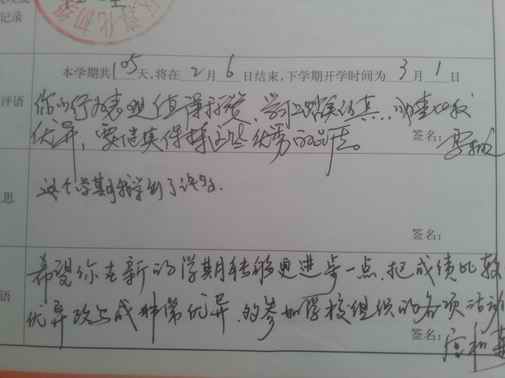 记录
本学期共105天,将在2月6日结束,下学期开学时间为3月1日
评语
你的行为表现值得称赞,学习踏实认真,成绩比较
优异,要继续保持这些优秀的品质。
签名:
思
这个学期我学到了许多。
签名:
希望你在新的学期能够更进步一点,把成绩比较
语
优异改上成非常优异,的参加学校组织的各项活动
签名: